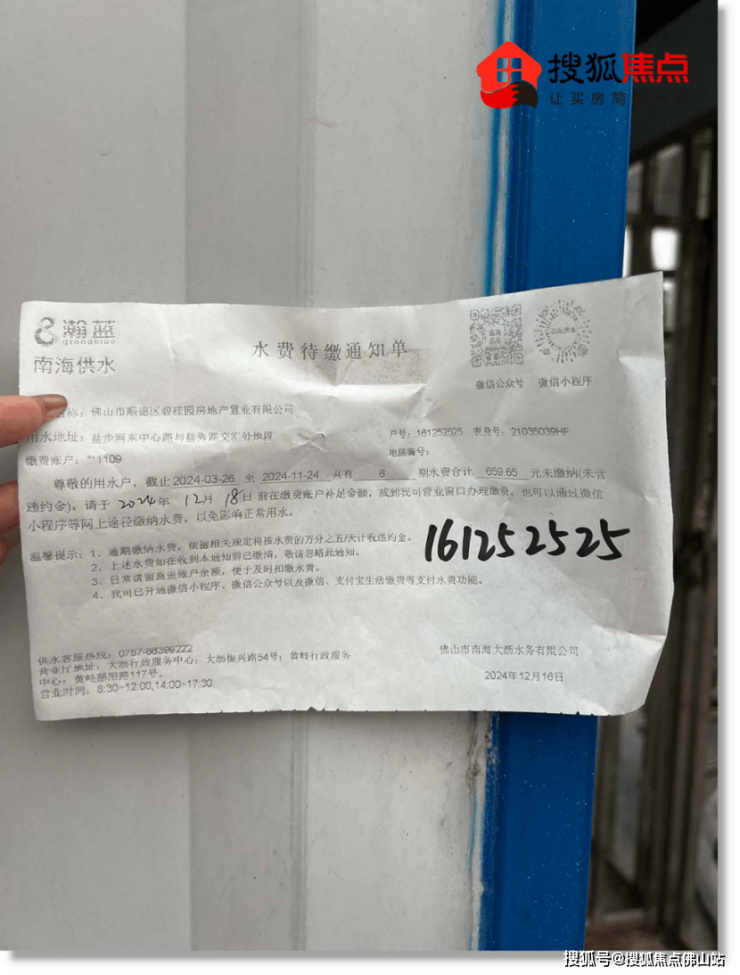 搜狐焦点
让买房简
瀚蓝
grandblue
南海供水
水费待缴通知单
微信公众号 微信小程序
名称：佛山市顺德区碧桂园房地产置业有限公司
用水地址：盐步河东中心路与盐秀路交汇处地段 户号：161252525 表身号：21035039HF
缴费账户：**1109 电脑编号：
尊敬的用水户，截止2024-03-26 至 2024-11-24 共有 6 期水费合计 659.65 元未缴纳(未含
违约金)，请于 2024年 12月 18日 前在缴费账户补足金额，或到我司营业窗口办理缴费，也可以通过微信
小程序等网上途径缴纳水费，以免影响正常用水。
温馨提示：1、逾期缴纳水费，依据相关规定将按水费的万分之五/天计收违约金。
2、上述水费如在收到本通知前已缴清，敬请忽略此通知。
3、日常请留意贵账户余额，便于及时扣缴水费。
4、我司已开通微信小程序、微信公众号以及微信、支付宝生活缴费等支付水费功能。
161252525
供水客服热线：0757-86399222
营业厅地址：大沥行政服务中心：大沥振兴路54号；黄岐行政服务
中心：黄岐鄱阳路117号。
营业时间：8:30-12:00,14:00-17:30
佛山市南海大沥水务有限公司
2024年12月16日
搜狐号@搜狐焦点佛山站